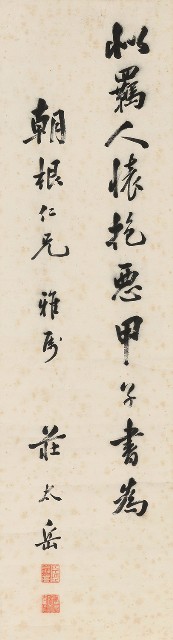 似羈人懷抱惡甲子書為
朝根仁兄雅属莊太岳